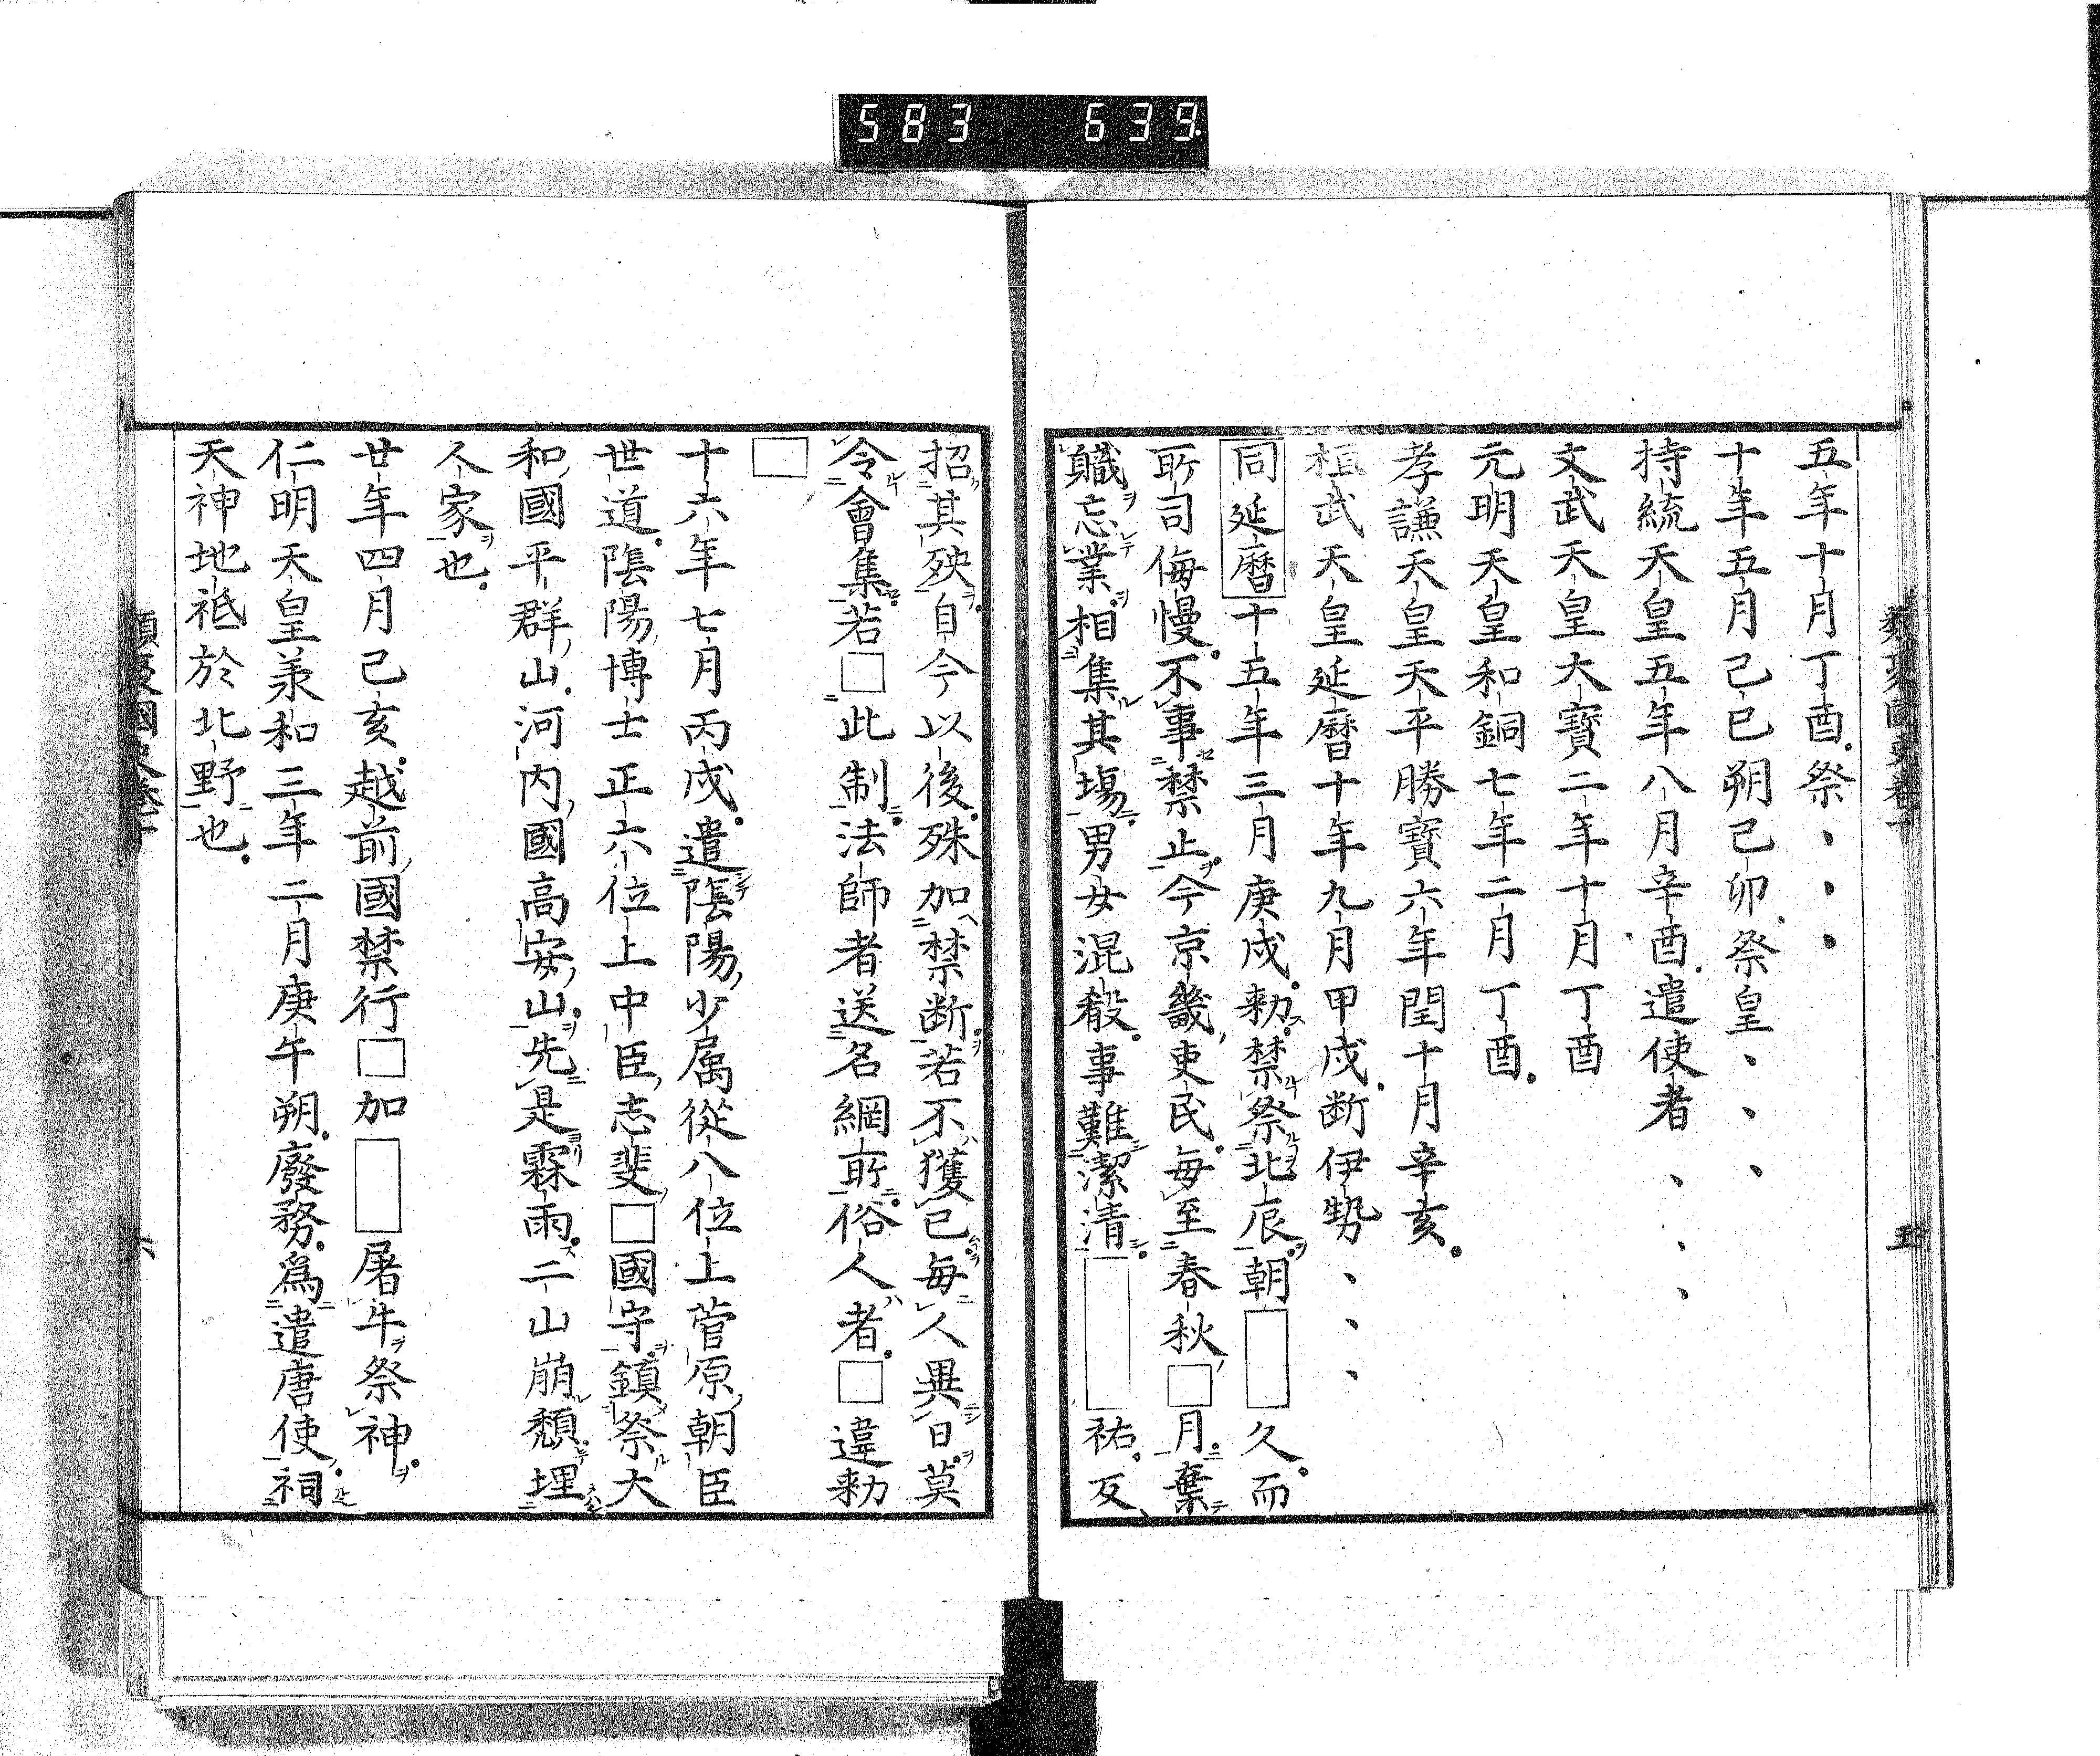 583 639
類聚國史卷十 五
五年十月丁酉祭、、、
十年五月己巳朔己卯祭皇、、、
持統天皇五年八月辛酉遣使者、、、
文武天皇大寶二年十月丁酉
元明天皇和銅七年二月丁酉
孝謙天皇天平勝寶六年閏十月辛亥
桓武天皇延曆十年九月甲戌断伊勢、、、
同延曆十五年三月庚戌勅禁祭北辰朝□久而
所司侮慢不事禁止今京畿吏民每至春秋□月棄
職忘業相集其場男女混殽事難潔清□祐反
招其殃自今以後殊加禁断若不獲已每人異日莫
令會集若□此制法師者送名綱所俗人者□違勅
□
十六年七月丙戌遣陰陽少属從八位上菅原朝臣
世道陰陽博士正六位上中臣志斐□國守鎮祭大
和國平群山河内國高安山先是霖雨二山崩頽埋
人家也
廿年四月己亥越前國禁行□加□屠牛祭神
仁明天皇羕和三年二月庚午朔廢務爲遣唐使祠
天神地祇於北野也
類聚國史卷十 六